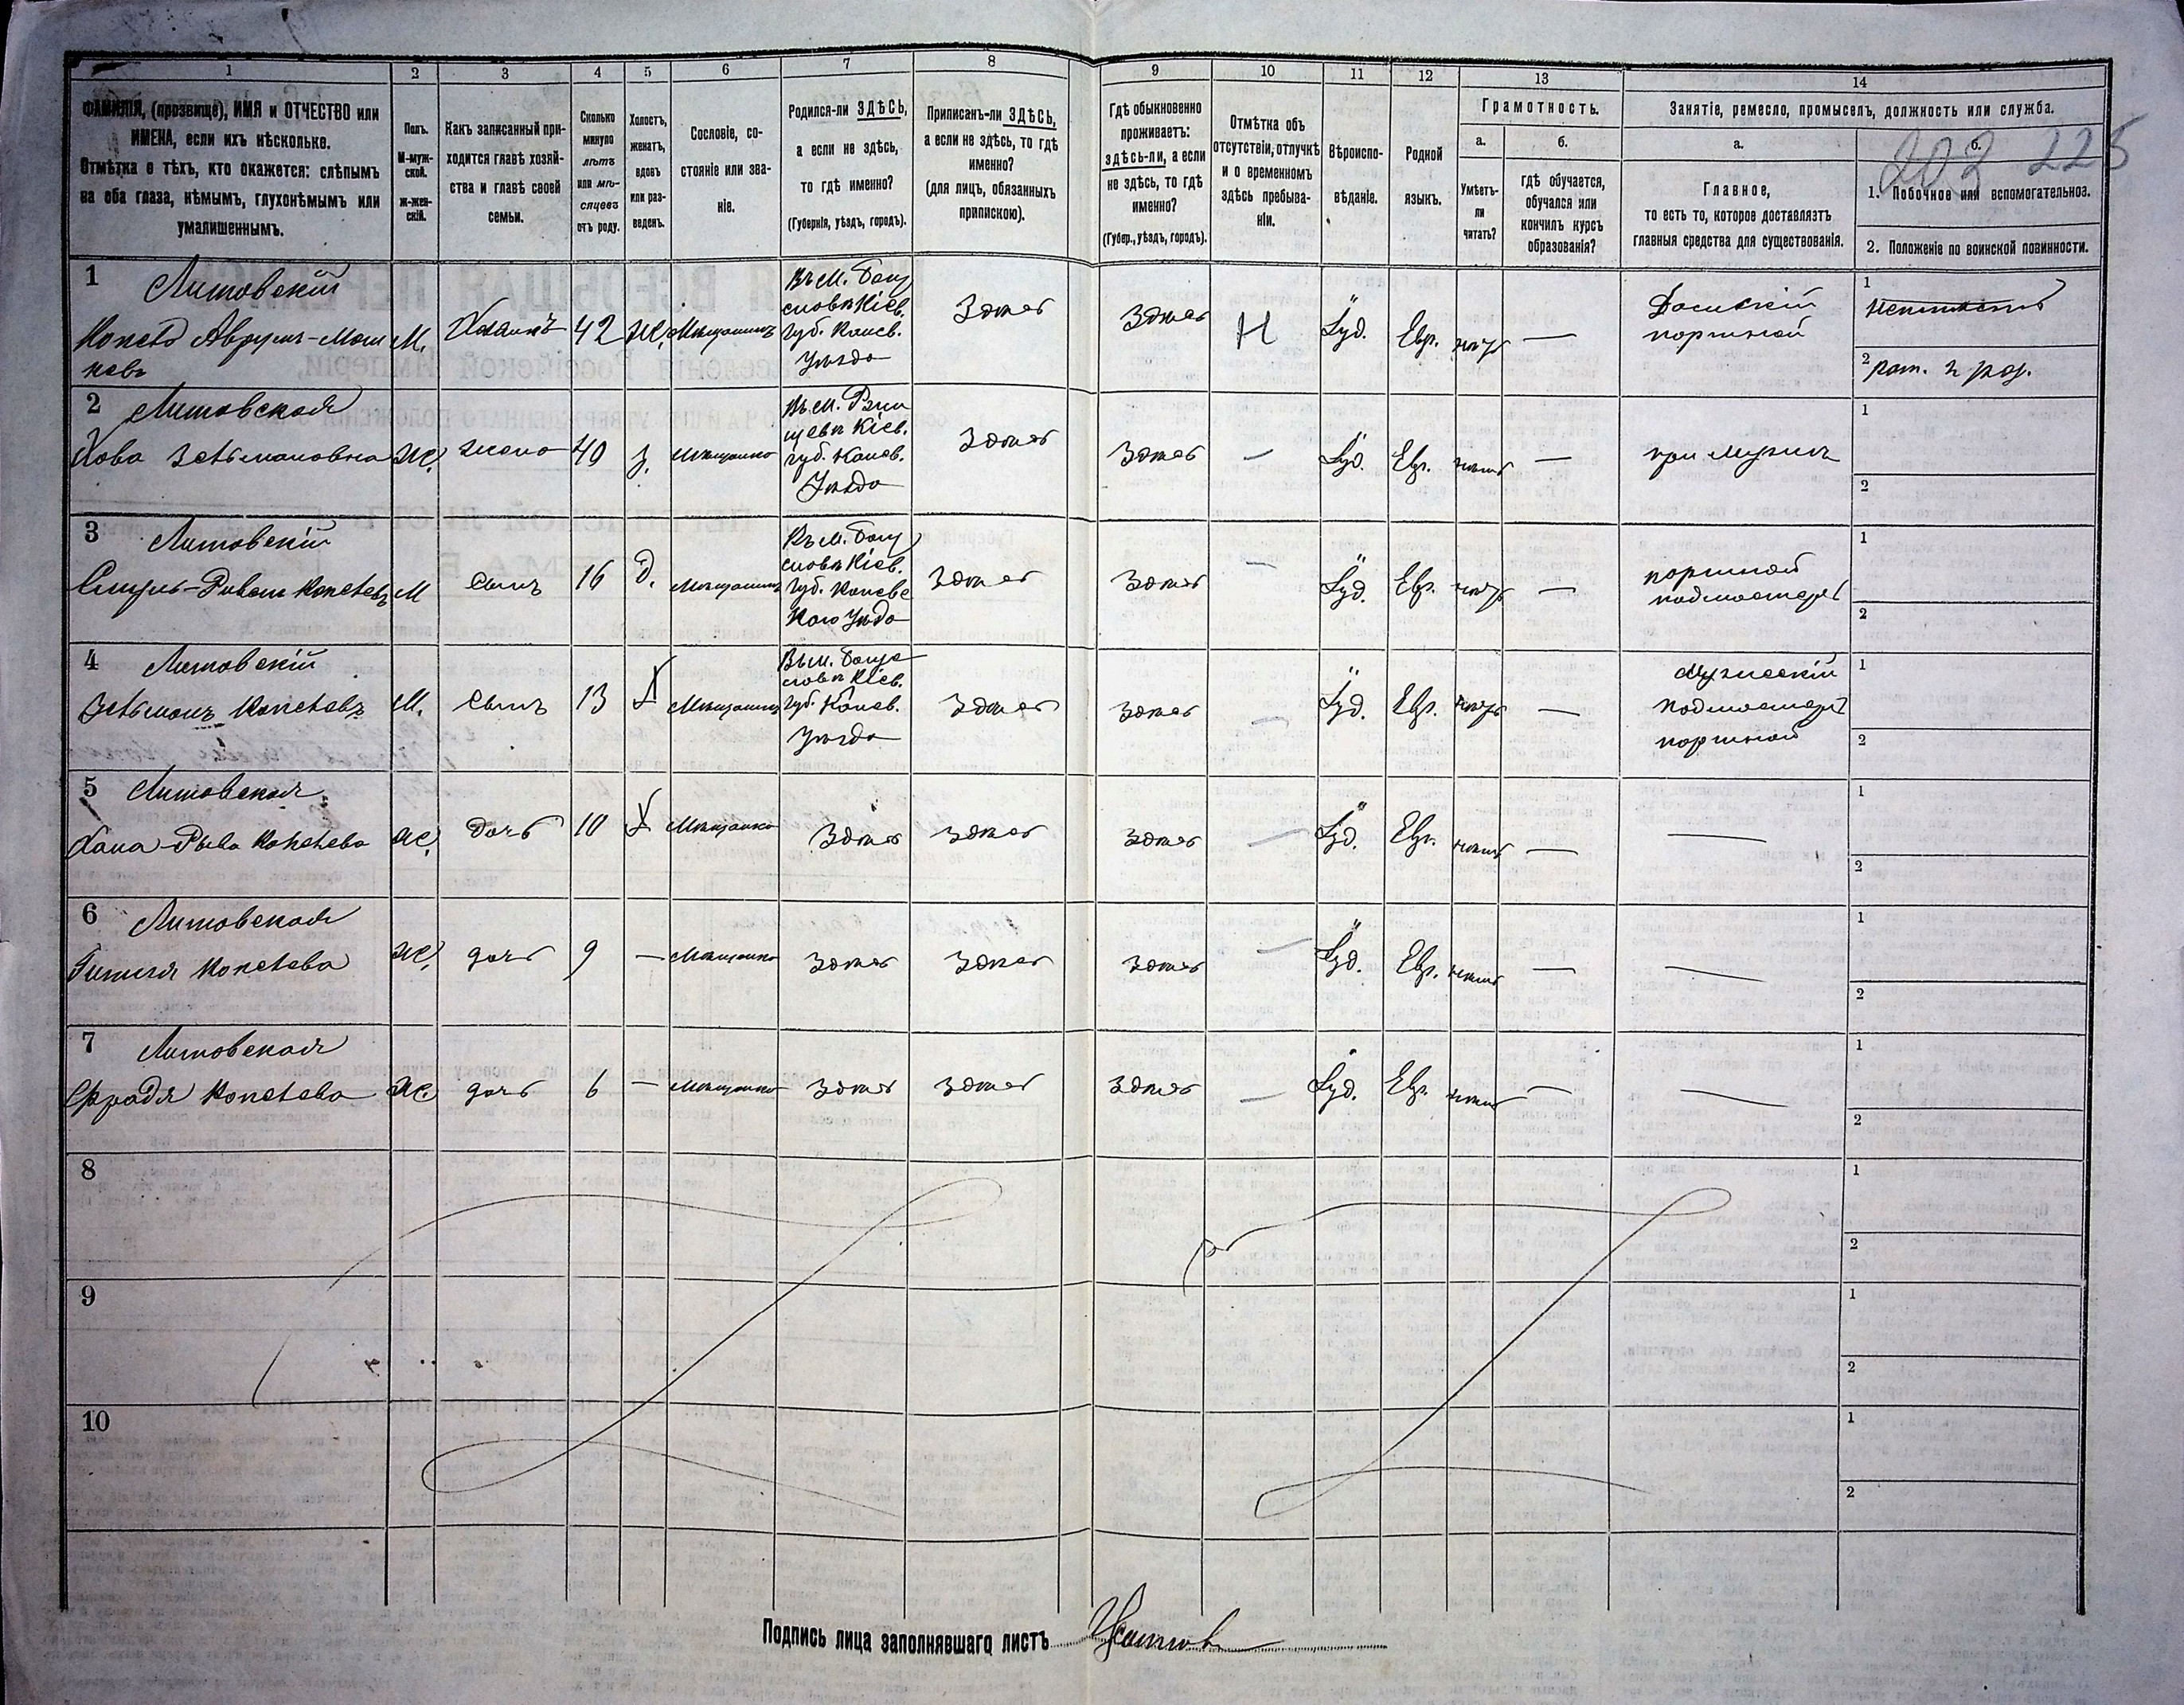 1
2
3
4
5
6
7
8
9
10
11
12
13
14
ФАМИЛІЯ, (прозвище), ИМЯ и ОТЧЕСТВО или
ИМЕНА, если ихъ нѣсколько.
Отмѣтка о тѣхъ, кто окажется: слѣпымъ
на оба глаза, нѣмымъ, глухонѣмымъ или
умалишеннымъ.
Полъ.
М-муж-
ской.
ж-жен-
скій.
Какъ записанный при-
ходится главѣ хозяй-
ства и главѣ своей
семьи.
Сколько
минуло
лѣтъ
или мѣ-
сяцевъ
отъ роду.
Холостъ,
женатъ,
вдовъ
или раз-
веденъ.
Сословіе, со-
стояніе или зва-
ніе.
Родился-ли ЗДѢСЬ,
а если не здѣсь,
то гдѣ именно?
(Губернія, уѣздъ, городъ).
Приписанъ-ли ЗДѢСЬ,
а если не здѣсь, то гдѣ
именно?
(для лицъ, обязанныхъ
припискою).
Гдѣ обыкновенно
проживаетъ:
здѣсь-ли, а если
не здѣсь, то гдѣ
именно?
(Губер., уѣздъ, городъ).
Отмѣтка объ
отсутствіи, отлучкѣ
и о временномъ
здѣсь пребыва-
ніи.
Вѣроиспо-
вѣданіе.
Родной
языкъ.
Грамотность.
а.
Умѣетъ-
ли
читать?
б.
гдѣ обучается,
обучался или
кончилъ курсъ
образованія?
Занятіе, ремесло, промыселъ, должность или служба.
а.
Главное,
то есть то, которое доставляетъ
главныя средства для существованія.
б.
202 225
1. Побочное или вспомогательное.
2. Положеніе по воинской повинности.
1 Литовскій
Копель Аврумъ-Мош
ковъ
М.
Хозяинъ
42
Ж.
Мѣщанинъ
Въ м. Богу
славѣ Кіев.
губ. Канев.
Уѣзда
Здѣсь
Здѣсь
Н
Іуд.
Евр.
—
портной
1
2
2 Литовская
Хова Зельмановна
Ж.
жена
40
З.
Мѣщанка
Въ м. Ржи
щевѣ Кіев.
губ. Канев.
Уѣзда
Здѣсь
Здѣсь
—
Іуд.
Евр.
нѣтъ
—
при мужѣ
1
2
3 Литовскій
Копелевъ
М
сынъ
16
Мѣщанинъ
Въ м. Богу
славѣ Кіев.
губ. Каневс
каго Уѣзда
Здѣсь
Здѣсь
—
Іуд.
Евр.
—
портной
подмастерье
1
2
4 Литовскій
Зельманъ Копелевъ
М.
сынъ
13
Х
Мѣщанинъ
Въ м. Богу
славѣ Кіев.
губ. Канев.
Уѣзда
Здѣсь
Здѣсь
—
Іуд.
Евр.
—
Мужескій
подмастерье
портной
1
2
5 Литовская
Хана-Рыва Копелева
Ж.
дочь
10
Х
Мѣщанка
Здѣсь
Здѣсь
Здѣсь
—
Іуд.
Евр.
нѣтъ
—
—
1
2
6 Литовская
Гитля Копелева
Ж.
дочь
9
—
Мѣщанка
Здѣсь
Здѣсь
Здѣсь
—
Іуд.
Евр.
нѣтъ
—
—
1
2
7 Литовская
Фрадя Копелева
Ж.
дочь
6
—
Мѣщанка
Здѣсь
Здѣсь
Здѣсь
—
Іуд.
Евр.
нѣтъ
—
—
1
2
8
1
2
9
1
2
10
1
2
Подпись лица заполнявшаго листъ